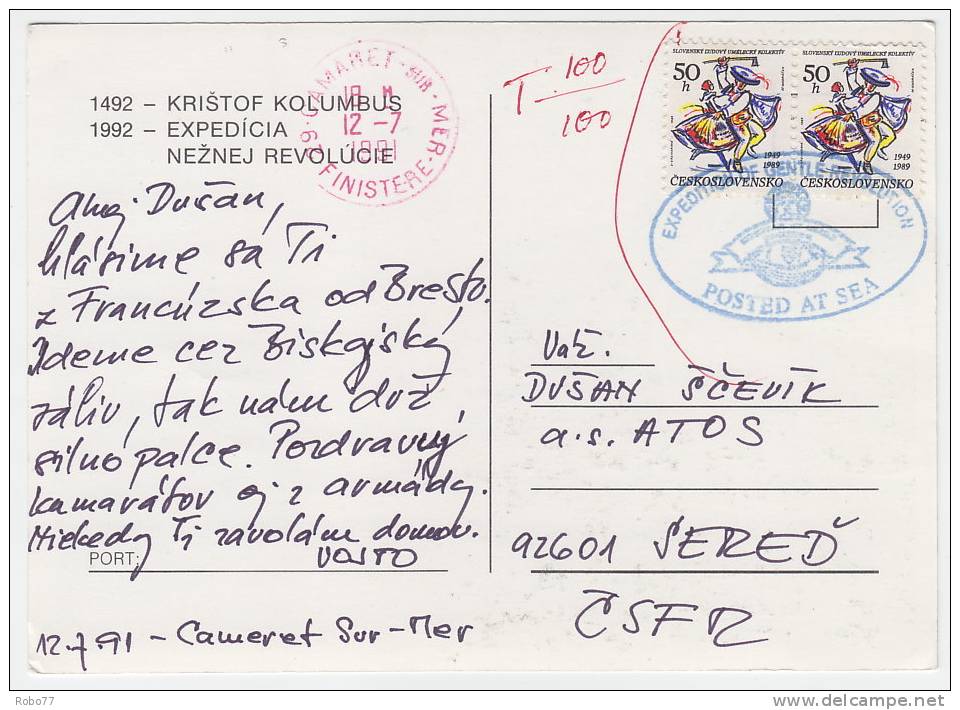 1492 – KRIŠTOF KOLUMBUS
1992 – EXPEDÍCIA
NEŽNEJ REVOLÚCIE
29 CAMARET-SUR-MER
18 H
12 -7
1991
FINISTERE
T 100
100
SLOVENSKÝ ĽUDOVÝ UMELECKÝ KOLEKTÍV
50
h
1949
1989
ČESKOSLOVENSKO
SLOVENSKÝ ĽUDOVÝ UMELECKÝ KOLEKTÍV
50
h
1949
1989
ČESKOSLOVENSKO
EXPEDITION OF GENTLE REVOLUTION
POSTED AT SEA
Ahoj Dušan,
hlásime sa Ti
z Francúzska od Brestu.
Ideme cez Biskajský
záliv, tak nám drž
silno palce. Pozdravuj
kamarátov aj z armády.
Niekedy Ti zavolám domov.
PORT:
VOJTO
12.7.91 – Cameret Sur-Mer
Váž.
DUŠAN ŠČEVÍK
a.s. ATOS
92601 SEREĎ
ČSFR
Robo77
delcampe.net